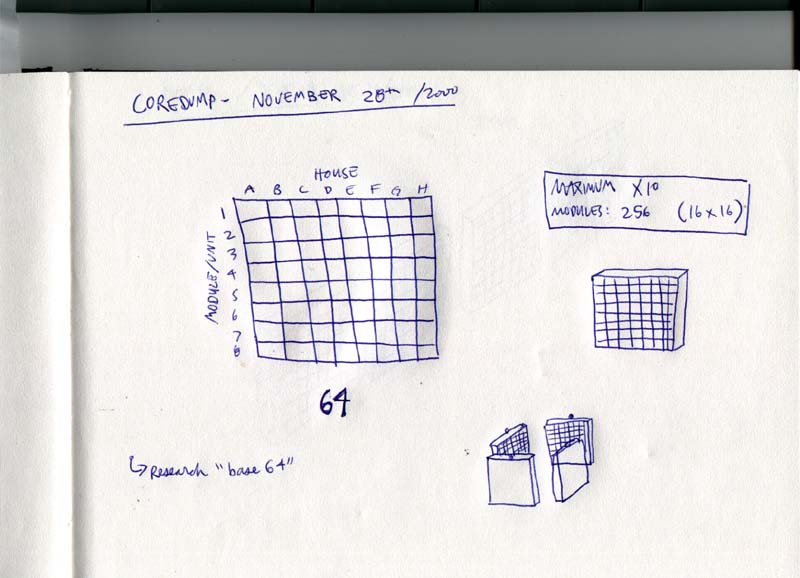 COREDUMP - NOVEMBER 28th /2000
HOUSE
A B C D E F G H
MODULE/UNIT
1
2
3
4
5
6
7
8
64
MAXIMUM X10
MODULES: 256 (16x16)
↳ Research "base 64"